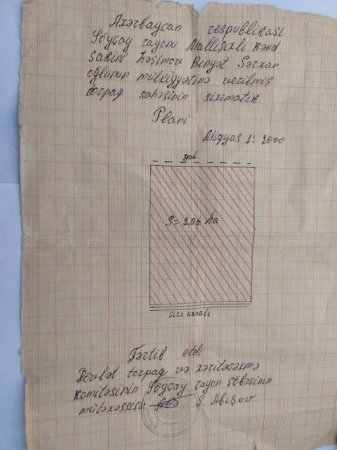 Azərbaycan respublikası
Göyçay rayonu Mallışıxlı kənd
sakini Həşimov Binyət Sərxan
oğlunun mülkiyyətinə verilmiş
torpaq sahəsinin sxematik
Planı
Miqyas 1: 2000
yol
S= 2.06 ha
Tərtib etdi
Dövlət torpaq və xəritəçəkmə
komitəsinin Göyçay rayon şöbəsinin
mütəxəssisi: Ş. Abışov